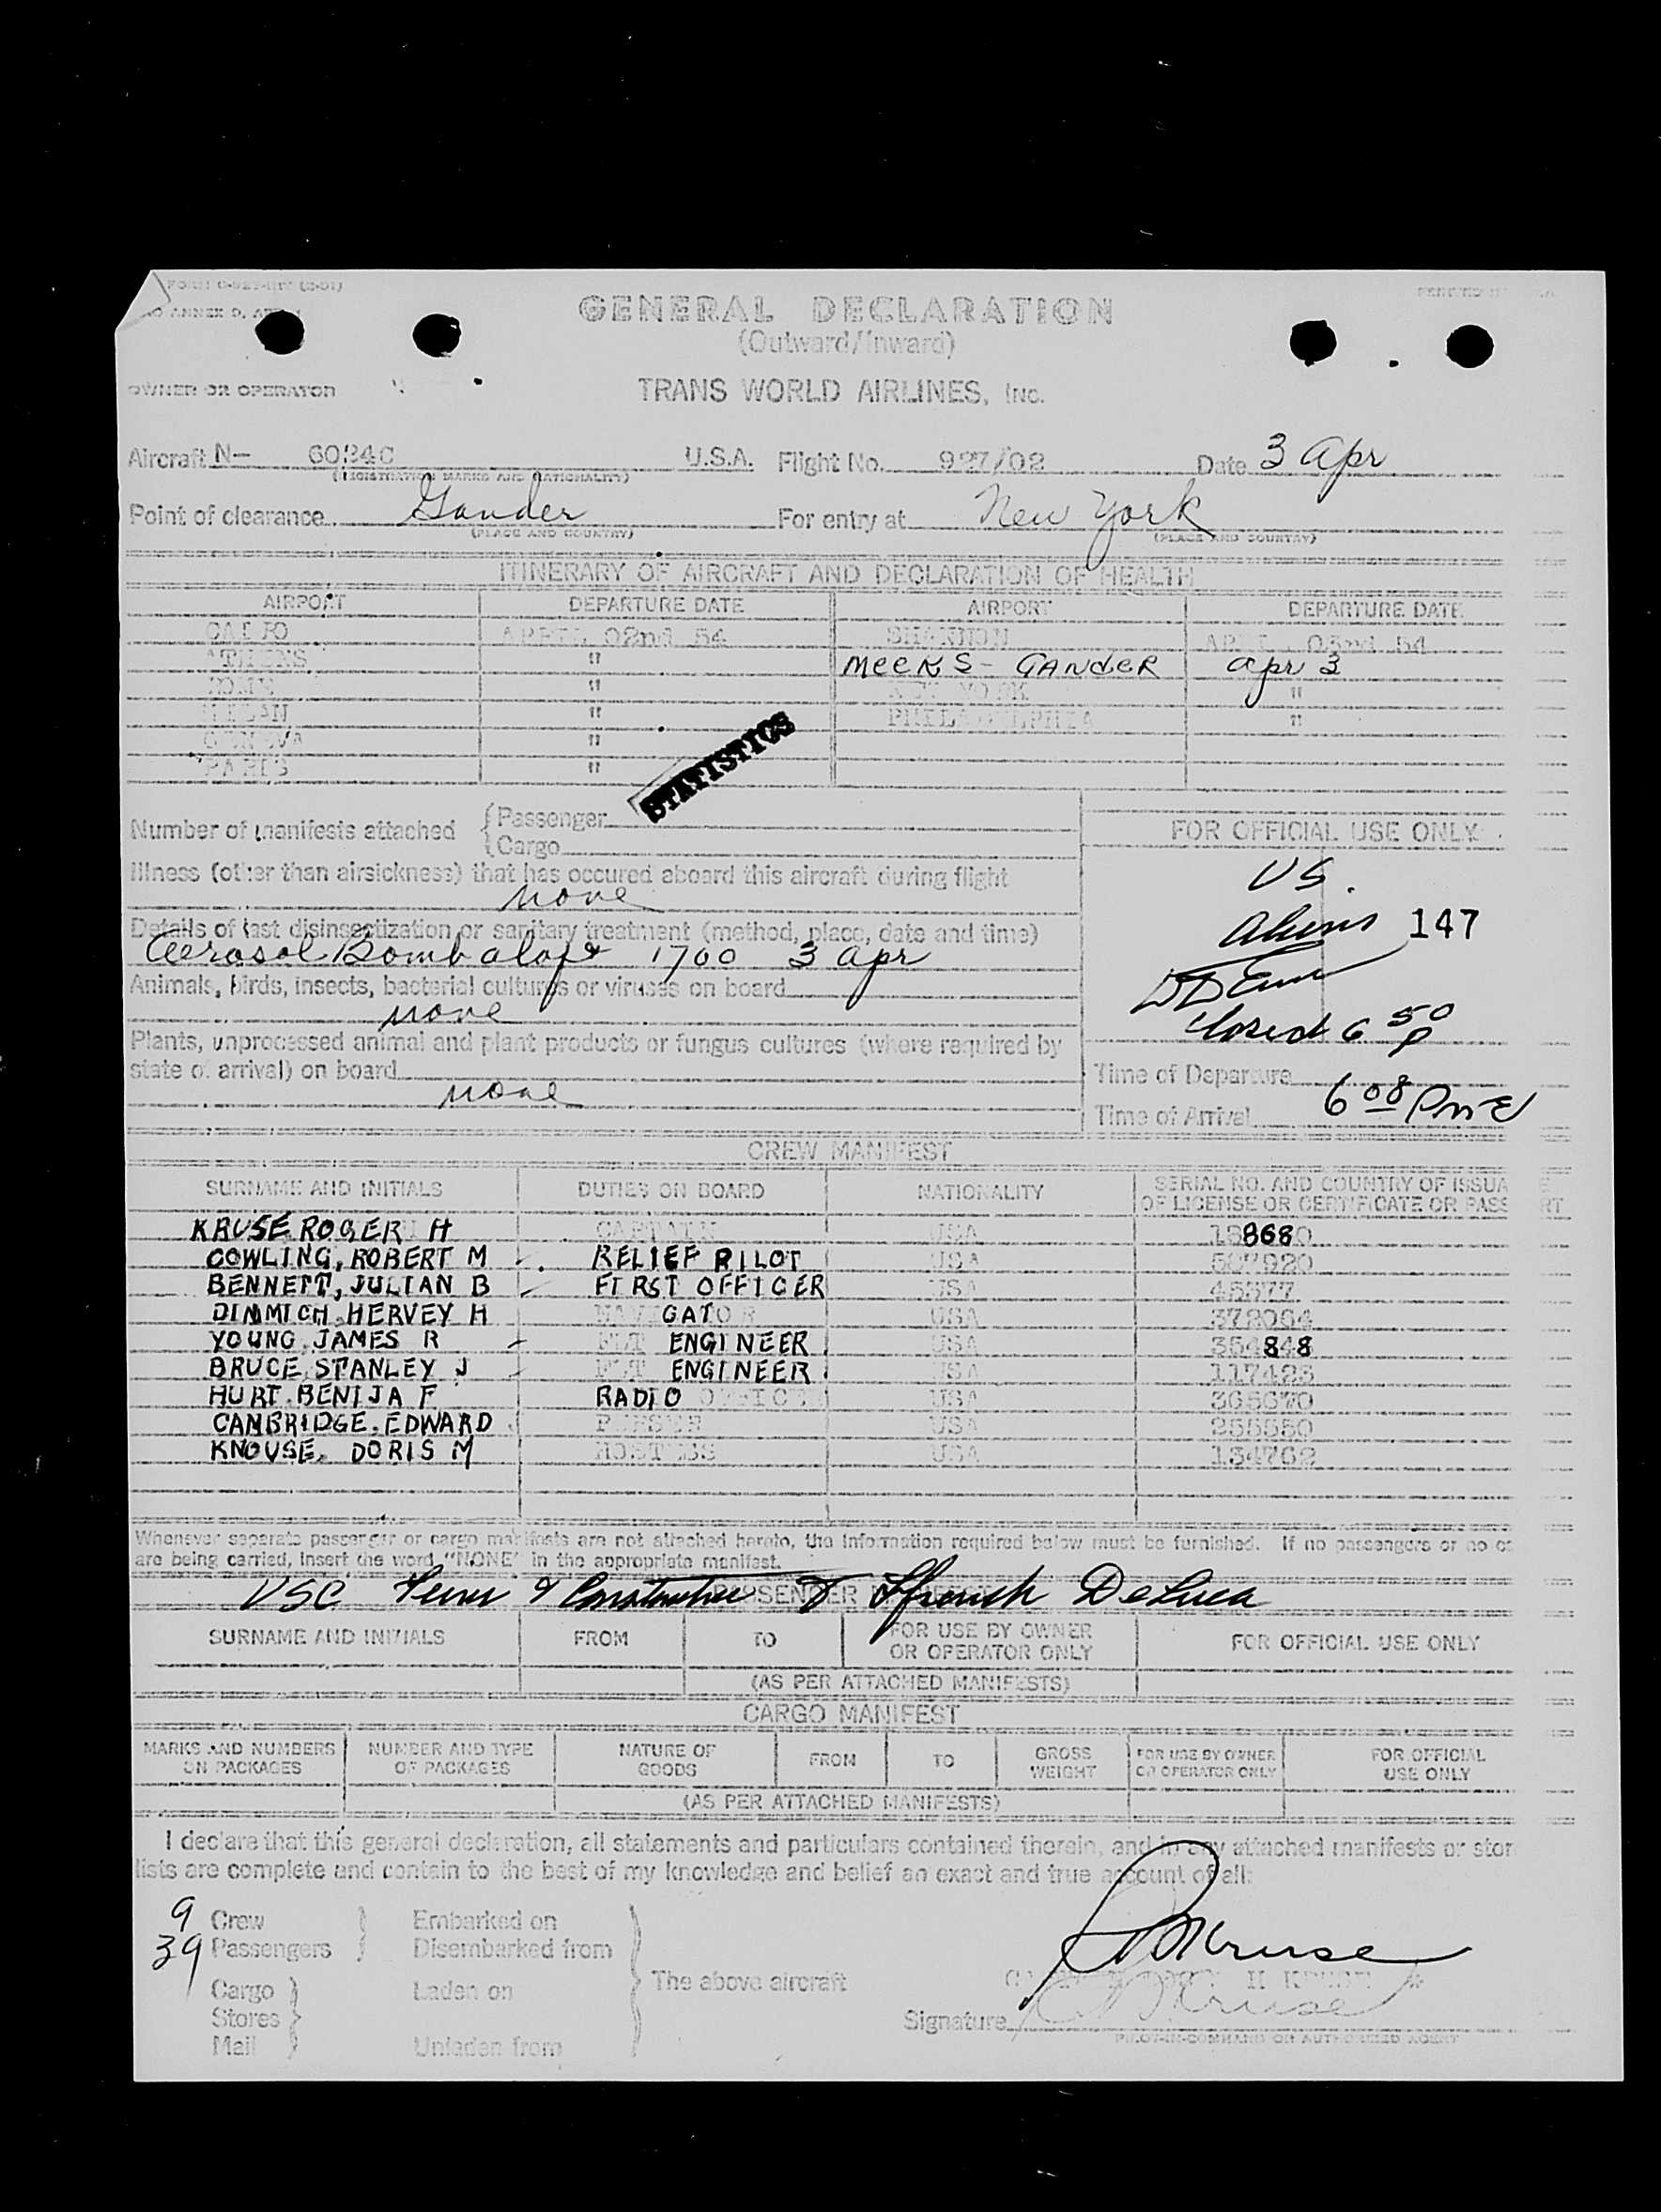 GENERAL DECLARATION
(Outward/Inward)
OWNER OR OPERATOR TRANS WORLD AIRLINES, INC.
Aircraft N— U.S.A. Flight No. 927/02 Date 3 Apr
(REGISTRATION MARKS AND NATIONALITY)
Point of clearance Gander For entry at New York
(PLACE AND COUNTRY) (PLACE AND COUNTRY)
ITINERARY OF AIRCRAFT AND DECLARATION OF HEALTH
AIRPORT DEPARTURE DATE AIRPORT DEPARTURE DATE
CAIRO APRIL 02nd 54 SHANNON
ATHENS " MEEKS - GANDER apr 3
ROME " NEW YORK "
MILAN " PHILADELPHIA "
GENEVA "
PARIS "
STATISTICS
Number of manifests attached {Passenger
{Cargo
FOR OFFICIAL USE ONLY
Illness (other than airsickness) that has occured aboard this aircraft during flight
none
US.
147
Details of last disinsectization or sanitary treatment (method, place, date and time)
Aerosol Bomb aloft 1700 3 apr
Animals, birds, insects, bacterial cultures or viruses on board
none
Closed 6 50 P
Plants, unprocessed animal and plant products or fungus cultures (where required by
state of arrival) on board
none
Time of Departure
Time of Arrival 6 08 Pm E
CREW MANIFEST
SURNAME AND INITIALS DUTIES ON BOARD NATIONALITY SERIAL NO. AND COUNTRY OF ISSUA E
OF LICENSE OR CERTIFICATE OR PASS RT
KRUSE ROGER H CAPTAIN USA
COWLING, ROBERT M RELIEF PILOT USA
BENNETT, JULIAN B FIRST OFFICER USA
DIMMICH, HERVEY H NAVIGATOR USA
YOUNG, JAMES R FLT ENGINEER USA 354848
BRUCE, STANLEY J FLT ENGINEER USA 117423
HURT, BENIJA F RADIO OFFICER USA 365670
CAMBRIDGE, EDWARD PURSER USA 255550
KNOUSE, DORIS M HOSTESS USA 134762
Whenever separate passenger or cargo manifests are not attached hereto, the information required below must be furnished. If no passengers or no c
are being carried, insert the word "NONE" in the appropriate manifest.
PASSENGER
DeLuca
SURNAME AND INITIALS FROM TO FOR USE BY OWNER
OR OPERATOR ONLY FOR OFFICIAL USE ONLY
(AS PER ATTACHED MANIFESTS)
CARGO MANIFEST
MARKS AND NUMBERS
ON PACKAGES NUMBER AND TYPE
OF PACKAGES NATURE OF
GOODS FROM TO GROSS
WEIGHT FOR USE BY OWNER
OR OPERATOR ONLY FOR OFFICIAL
USE ONLY
(AS PER ATTACHED MANIFESTS)
I declare that this general declaration, all statements and particulars contained therein, and in any attached manifests or stor
lists are complete and contain to the best of my knowledge and belief an exact and true account of all:
9 Crew Embarked on
39 Passengers Disembarked from
Cargo Laden on The above aircraft
Stores
Mail Unladen from
RHKruse
Signature RHKruse
PILOT-IN-COMMAND OR AUTHORIZED AGENT